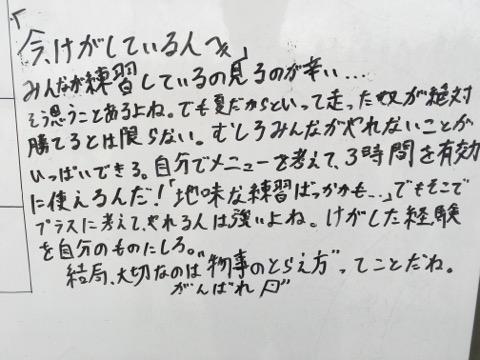 「今、けがしている人へ」
みんなが練習しているの見るのが辛い...
そう思うことあるよね。でも夏だからといって走った奴が絶対
勝てるとは限らない。むしろみんながやれないことが
いっぱいできる。自分でメニューを考えて、3時間を有効
に使えるんだ!「地味な練習ばっかかも...」でもそこで
プラスに考えて、やれる人は強いよね。けがした経験
を自分のものにしろ。
結局、大切なのは"物事のとらえ方"ってことだね。
がんばれ